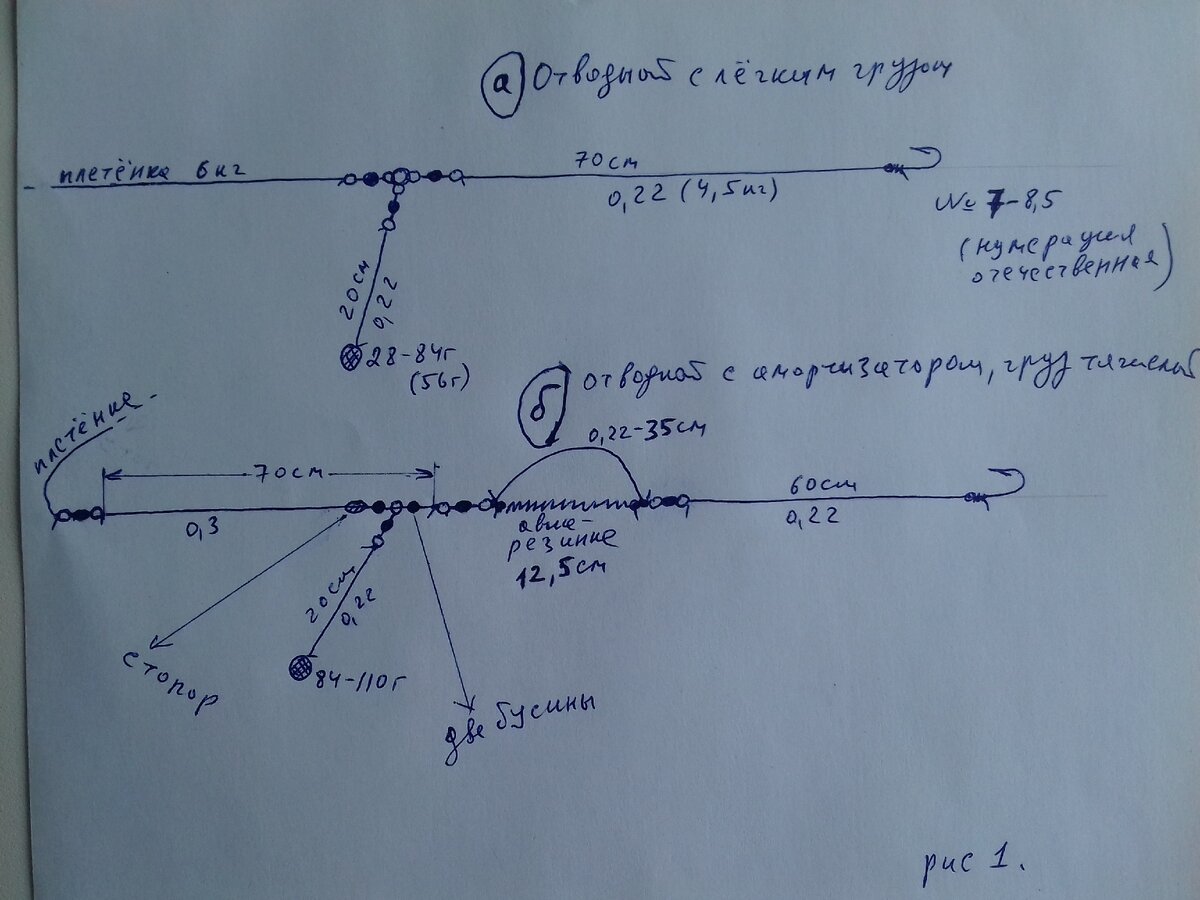 а Отводной с лёгким грузом
плетёнка 6кг
70см
0,22 (4,5кг)
№ 7-8,5
(нумерация
отечественная)
20см
0,22
28-84г
(56г)
б отводной с амортизатором, груз тяжелый
плетёнка
0,22-35см
70см
0,3
60см
0,22
авиа-
резинка
12,5см
20см
0,22
84-110г
стопор
две бусины
рис 1.